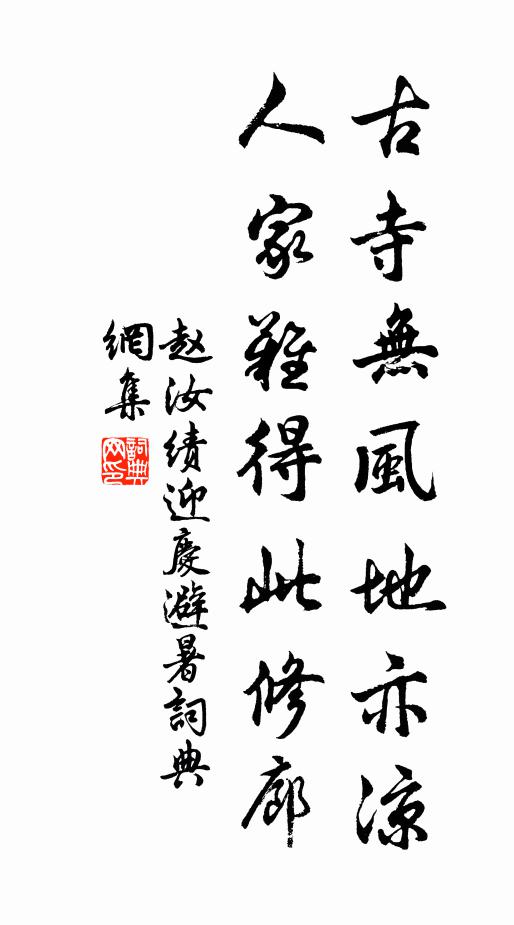 古寺無風地亦涼
人家難得此修廊
赵汝绩迎慶避暑詞典
網集
詞典
网印